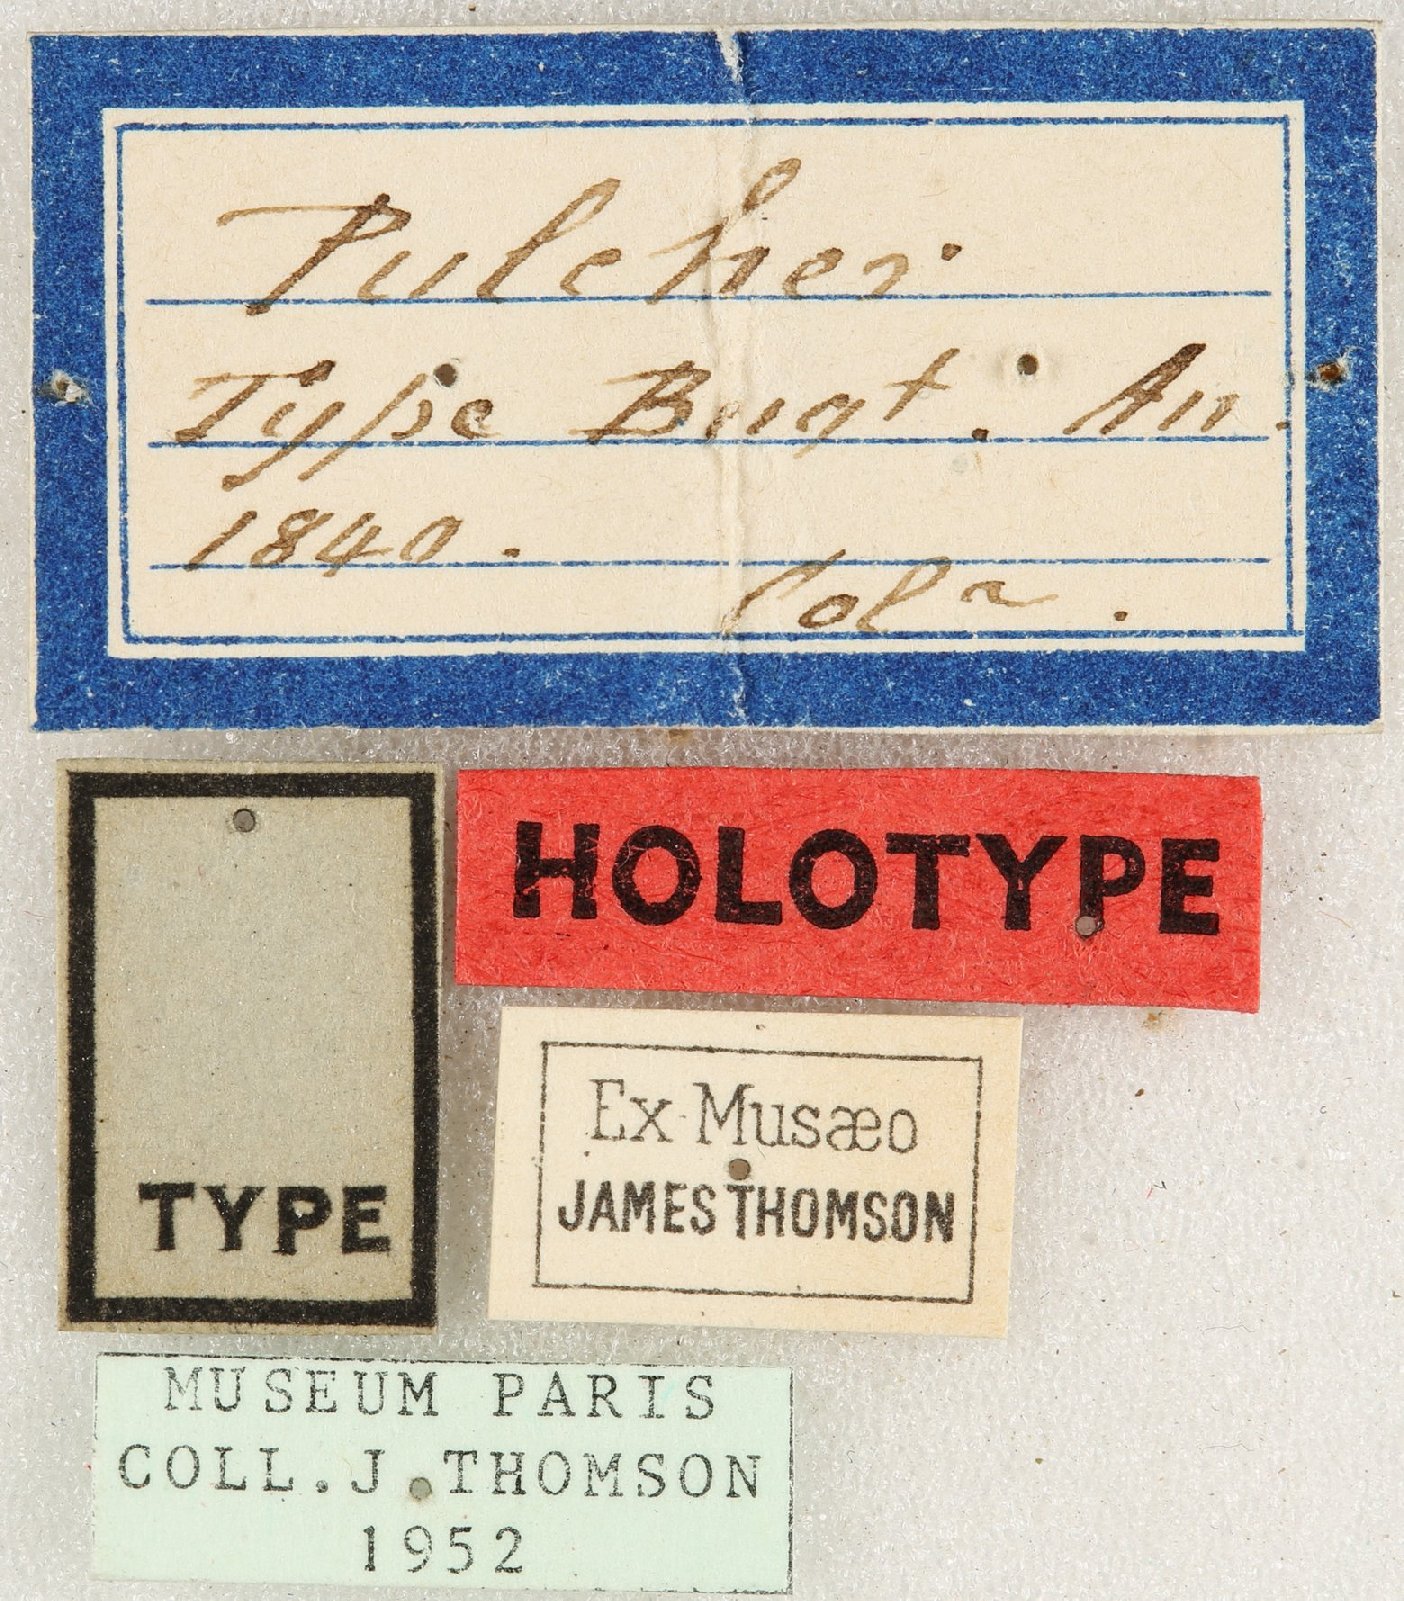 Pulcher.
Type Buqt. An.
1840.
Col a.
TYPE
HOLOTYPE
Ex Musæo
JAMES THOMSON
MUSEUM PARIS
COLL. J. THOMSON
1952